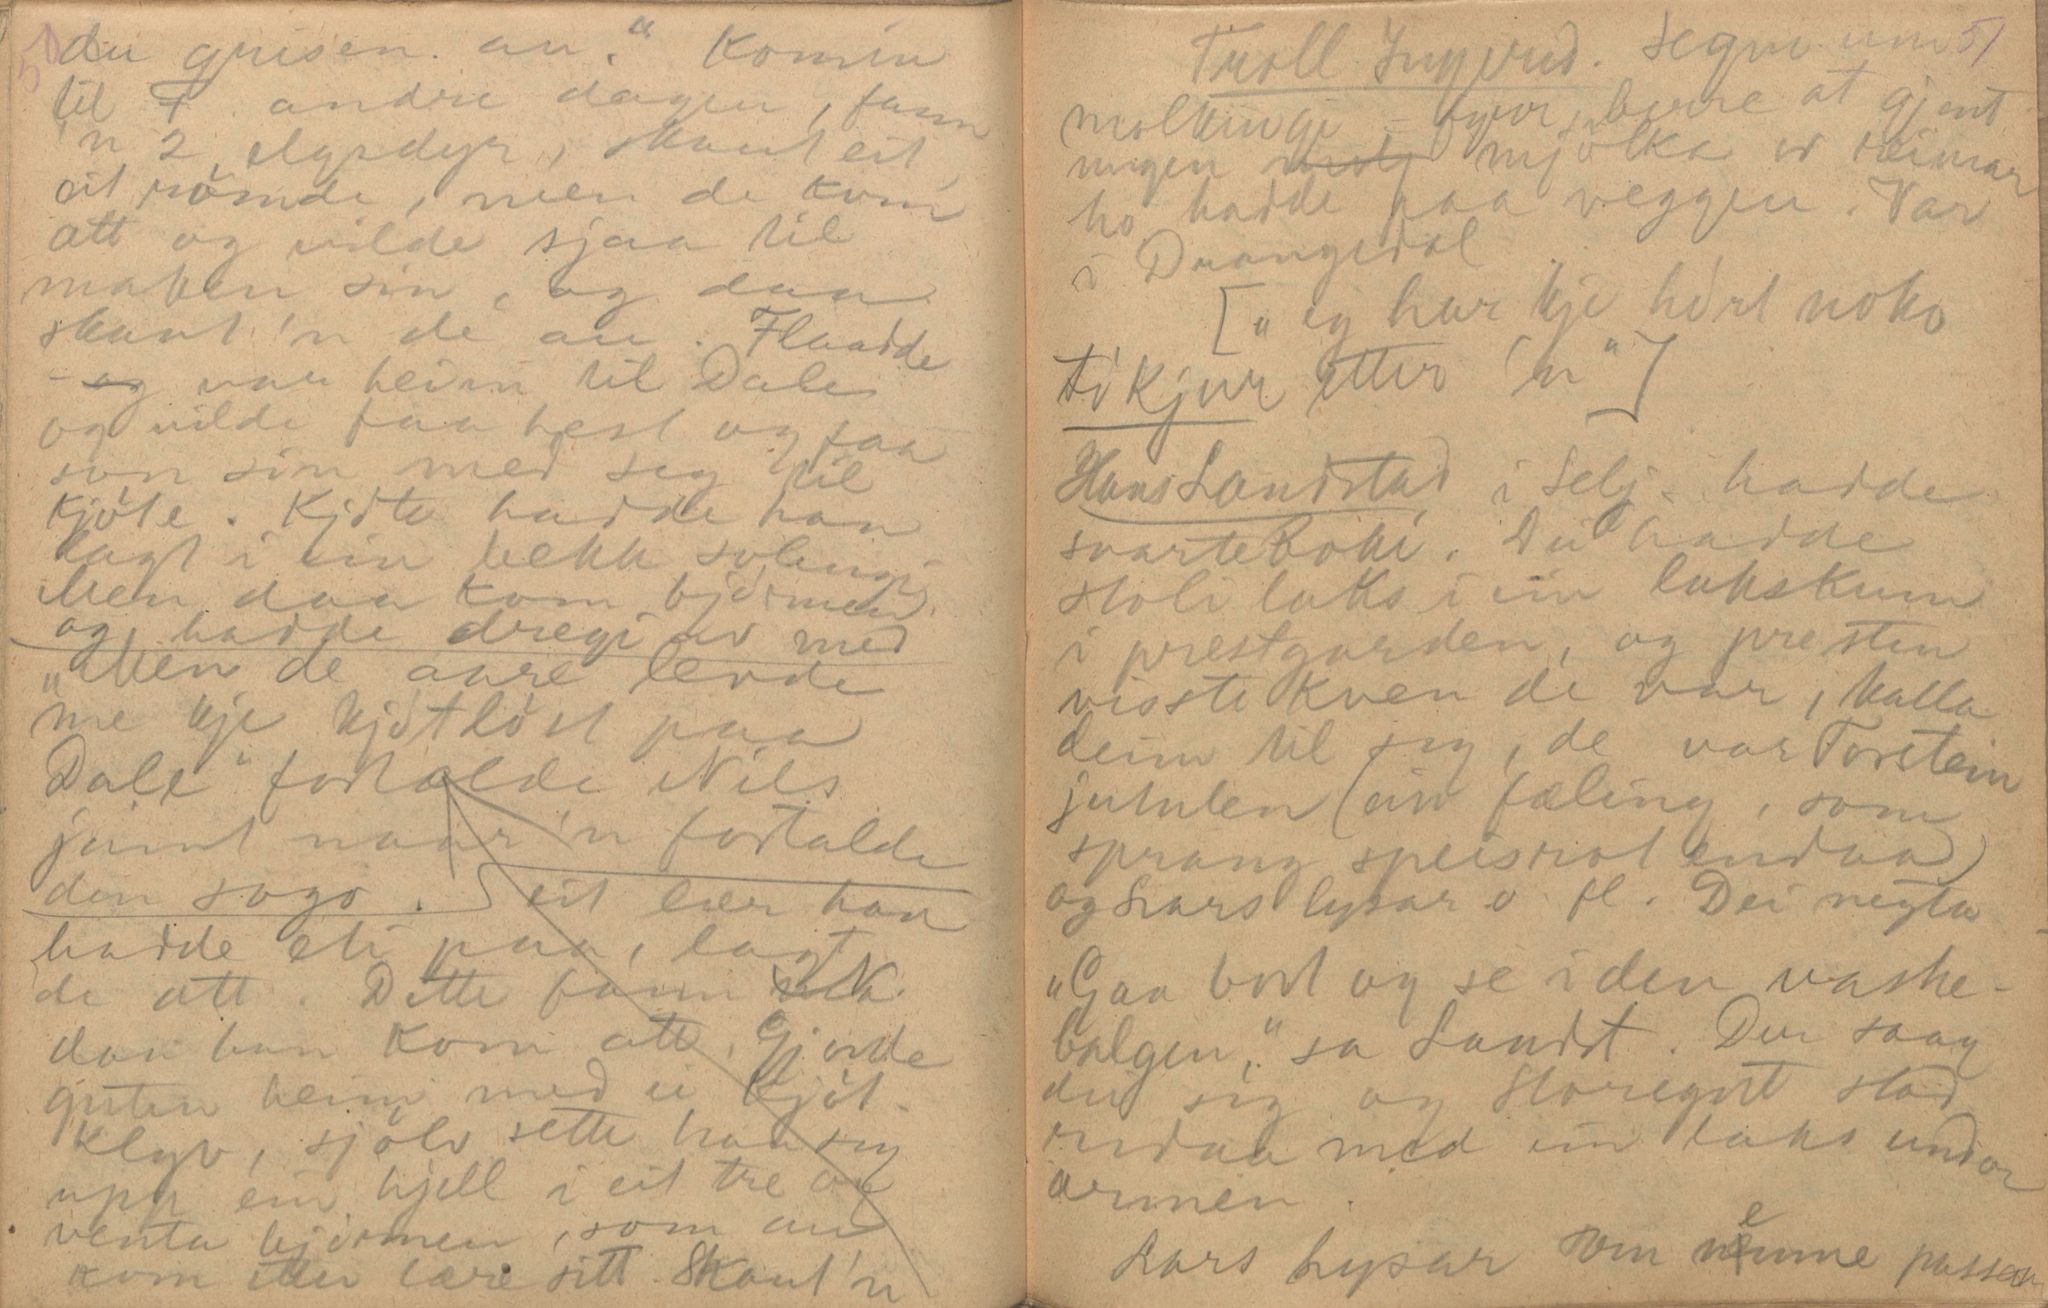 50
du grisen au." Komin
til F. andre dagen, fann
'n 2 elgsdyr, skaut eit
eit römde, men de kom
att og vilde sjaa til
maken sin, og daa
skaut 'n de au. Flaadde
- og var heim til Dale
og vilde faa hest og faa
son sin med seg til
kjöte. Kjöte hadde han
lagt i ein bekk
Men daa kom björnen
og hadde dregi av med
"Men de aare levde
me kje kjötlöst paa
Dale" fortalde Nils
jamt naar 'n fortalde
den sogo. eit lær han
hadde eti paa, lagt
de att. Dette fann N.
daa han kom att. Gjorde
guten heim med ei kjöt-
klyv, sjölv sette han seg
upp ein hjell i eit tre og
venta björnen, som au
kom etter lære sitt. Skaut 'n
51
Troll Ingerid. Segni um
molkingi - berre at gjent
ungen mjölka or reimar
ho hadde paa veggen. Var
i Drangedal
["eg har kje hört noko
tikjur etter 'n"]
Hans Landstad i Selj. hadde
svarteboki. Dei hadde
stole laks i ein lakskum
i prestgarden, og presten
visste kven de var, kalla
deim til seg, de var Torstein
jutulen (ein fæling, som
sprang speisrot endaa)
og Lars Lysar o. fl. Dei negta
"Gaa bort og se i den vaske-
balgen," sa Landst. Der saag
dei seg og Storegut stod
endaa med ein laks undor
armen.
Lars Lysar som